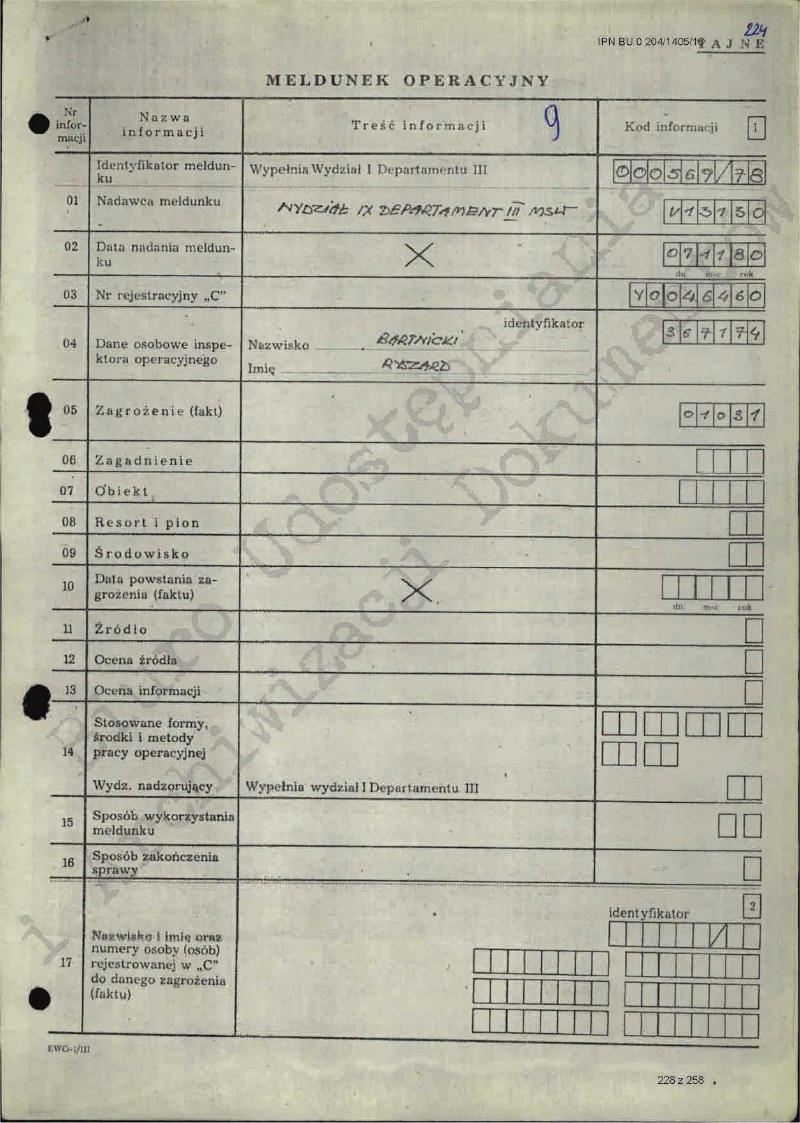 224
IPN BU 0 204/1405/16
TAJNE
MELDUNEK OPERACYJNY
Nr infor-macji
Nazwa informacji
Treść informacji
9
Kod informacji
1
Identyfikator meldun-
ku
Wypełnia Wydział I Departamentu III
000569/78
01
Nadawca meldunku
WYDZIAŁ IX DEPARTAMENT III MSW
V13130
02
Data nadania meldun-
ku
X
071180
dn. m-c rok
03
Nr rejestracyjny „C"
Y0046460
04
Dane osobowe inspe-
ktora operacyjnego
identyfikator
Nazwisko BARTNICKI
Imię RYSZARD
367174
05
Zagrożenie (fakt)
01031
06
Zagadnienie
07
Obiekt
08
Resort i pion
09
Środowisko
10
Data powstania za-
grożenia (faktu)
X
dn. m-c rok
11
Źródło
12
Ocena źródła
13
Ocena informacji
14
Stosowane formy,
środki i metody
pracy operacyjnej
Wydz. nadzorujący
Wypełnia wydział I Departamentu III
15
Sposób wykorzystania
meldunku
16
Sposób zakończenia
sprawy
17
Nazwisko i imię oraz
numery osoby (osób)
rejestrowanej w „C"
do danego zagrożenia
(faktu)
2
identyfikator
/
EWO-1/III
228 z 258
Biuro Udostępniania
i Archiwizacji Dokumentów